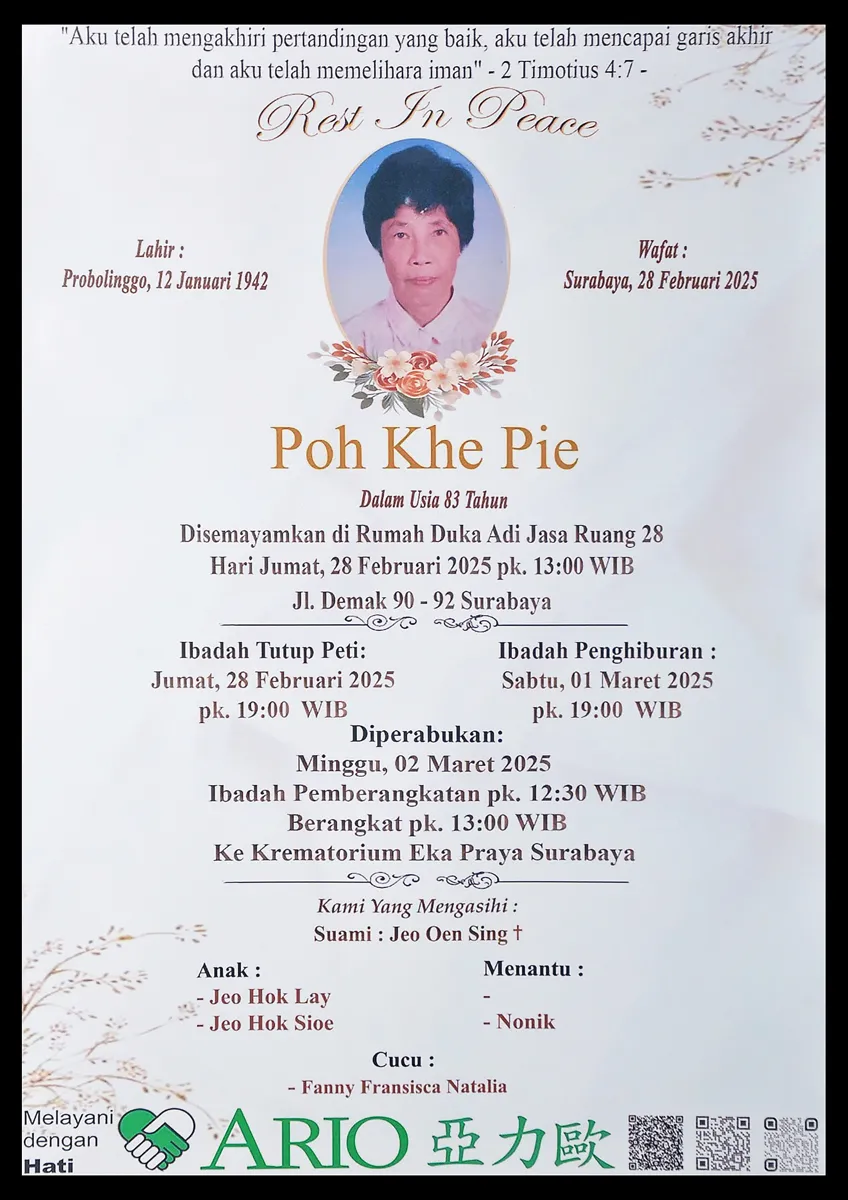 "Aku telah mengakhiri pertandingan yang baik, aku telah mencapai garis akhir
dan aku telah memelihara iman" - 2 Timotius 4:7 -
Rest In Peace
Lahir :
Probolinggo, 12 Januari 1942
Wafat :
Surabaya, 28 Februari 2025
Poh Khe Pie
Dalam Usia 83 Tahun
Disemayamkan di Rumah Duka Adi Jasa Ruang 28
Hari Jumat, 28 Februari 2025 pk. 13:00 WIB
Jl. Demak 90 - 92 Surabaya
Ibadah Tutup Peti:
Jumat, 28 Februari 2025
pk. 19:00 WIB
Ibadah Penghiburan :
Sabtu, 01 Maret 2025
pk. 19:00 WIB
Diperabukan:
Minggu, 02 Maret 2025
Ibadah Pemberangkatan pk. 12:30 WIB
Berangkat pk. 13:00 WIB
Ke Krematorium Eka Praya Surabaya
Kami Yang Mengasihi :
Suami : Jeo Oen Sing †
Anak :
- Jeo Hok Lay
- Jeo Hok Sioe
Menantu :
-
- Nonik
Cucu :
- Fanny Fransisca Natalia
Melayani
dengan
Hati
ARIO 亞力歐